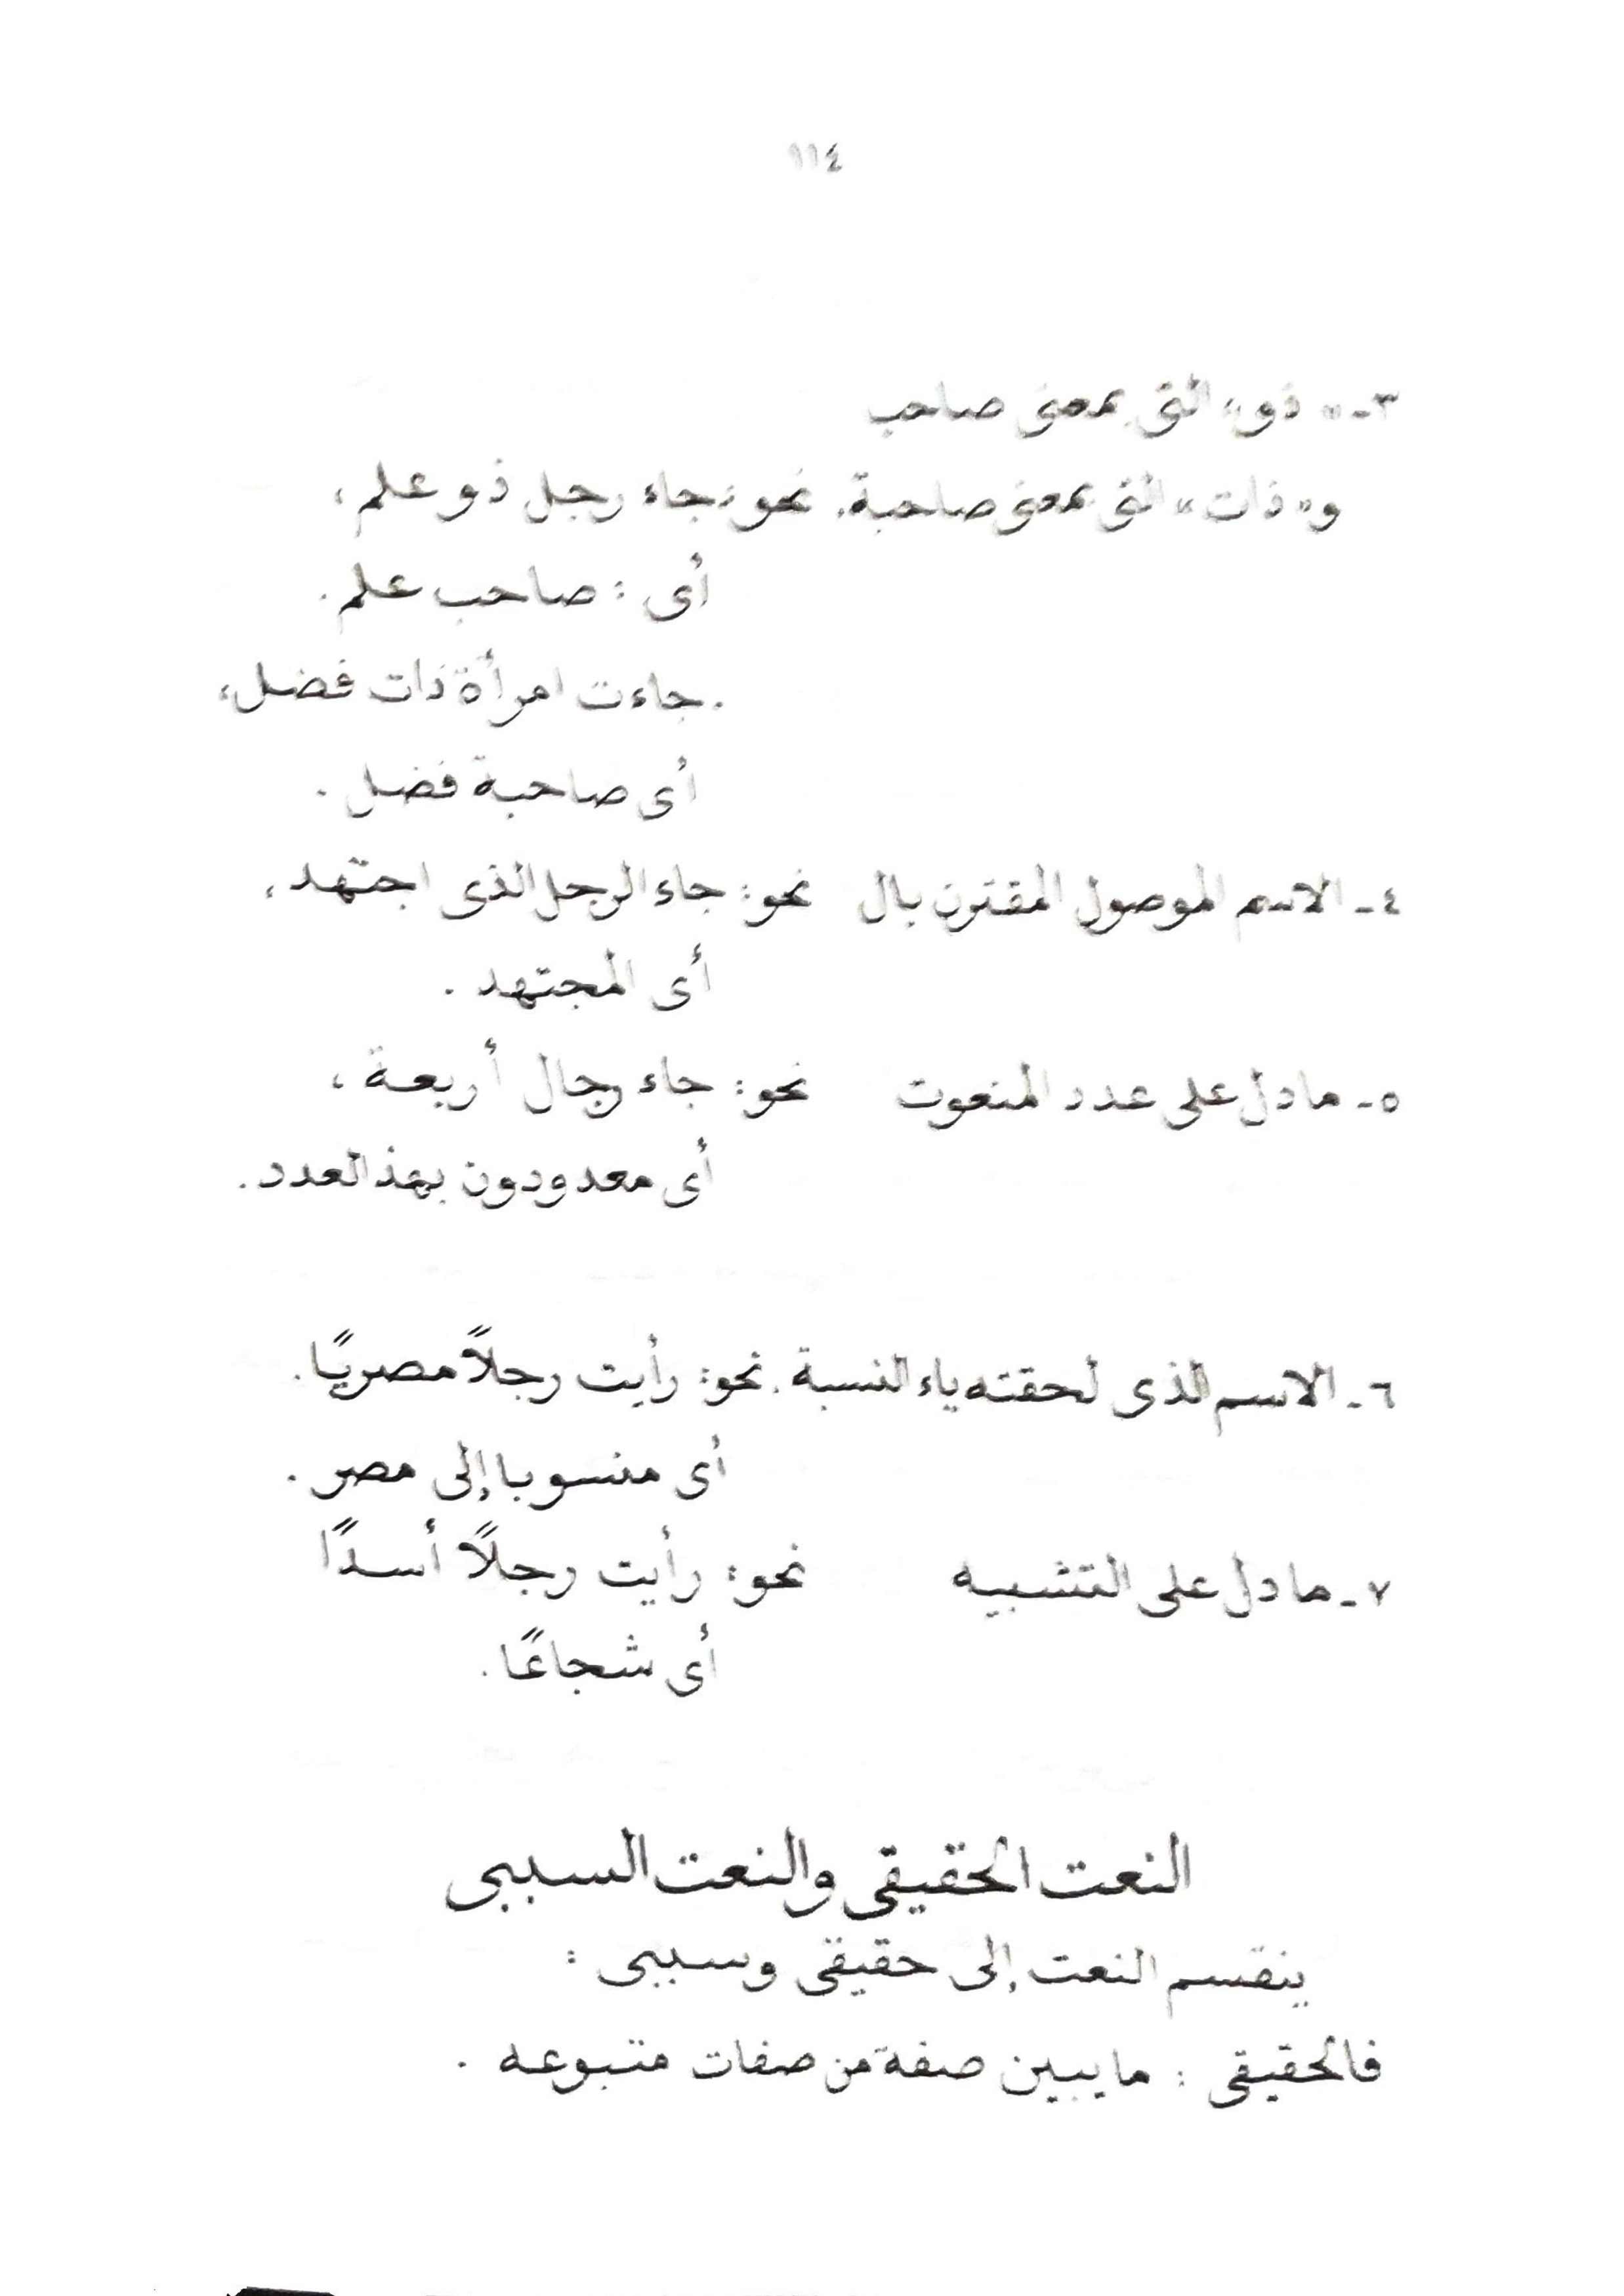 ١١٤
٣ـ «ذو» التى بمعنى صاحب
و«ذات» التى بمعنى صاحبة. نحو: جاء رجل ذو علم،
أى : صاحب علم.
. جاءت امرأة ذات فضل،
أى صاحبة فضل .
٤ـ الاسم الموصول المقترن بال نحو: جاء الرجل الذى اجتهد،
أى المجتهد .
٥ـ مادل على عدد المنعوت نحو: جاء رجال أربعة ،
أى معدودون بهذ العدد.
٦ـ الاسم الذى لحقته ياء النسبة. نحو: رأيت رجلاً مصريًا.
أى منسوبا إلى مصر .
٧ـ مادل على التشبيه نحو: رأيت رجلاً أسدًا
أى شجاعًا.
النعت الحقيقى والنعت السببى
ينقسم النعت إلى حقيقى وسببى :
فالحقيقى : ما يبين صفة من صفات متبوعه .